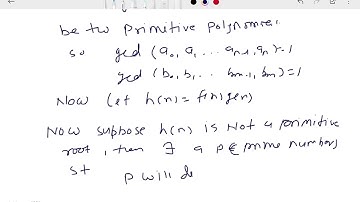 be two primitive polynomial
so gcd (a₀, a₁, ... aₙ₋₁, aₙ)=1
gcd (b₀, b₁ ... bₘ₋₁, bₘ)=1
Now let h(n) = f(n)g(n)
Now suppose h(n) is Not a primitive
root, then ∃ a p ∈ prime numbers
st p will de